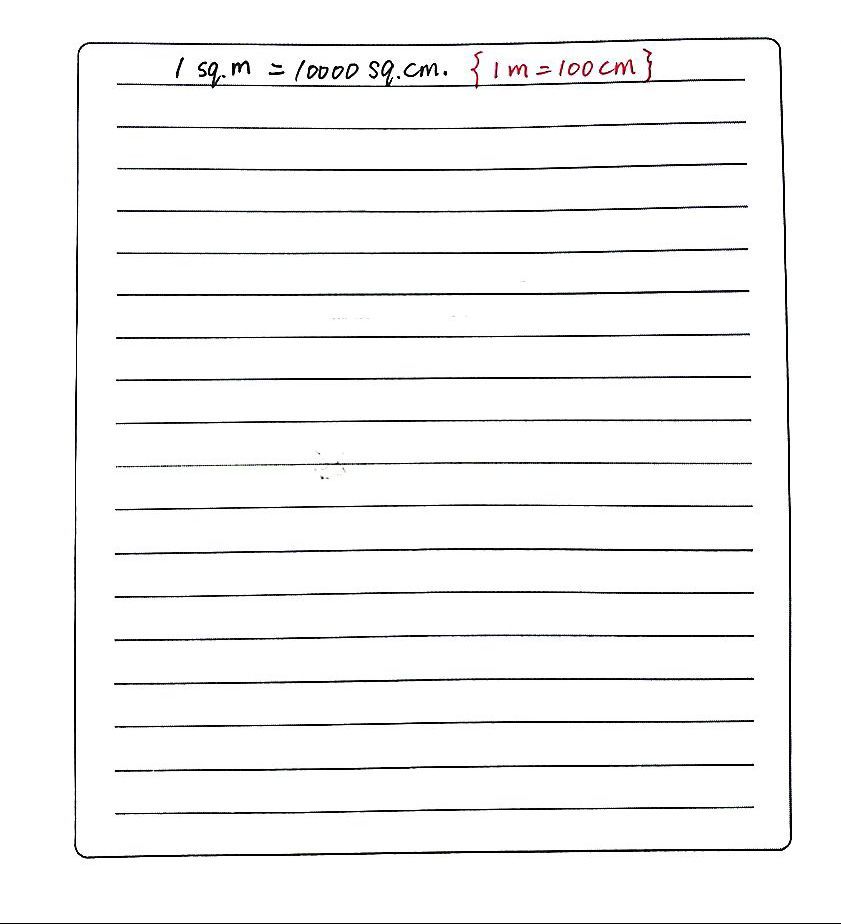 1 sq.m = 10000 sq.cm. {1m = 100cm}